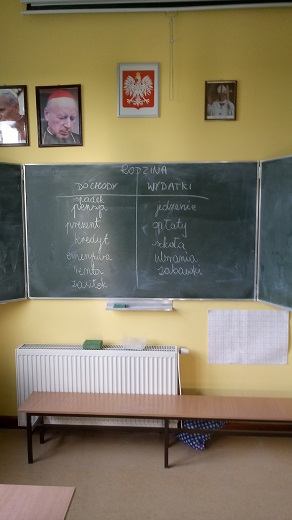 RODZINA
DOCHODY WYDATKI
spadek
pensja jedzenie
prezent opłaty
kredyt szkoła
emerytura ubrania
renta zabawki
zasiłek